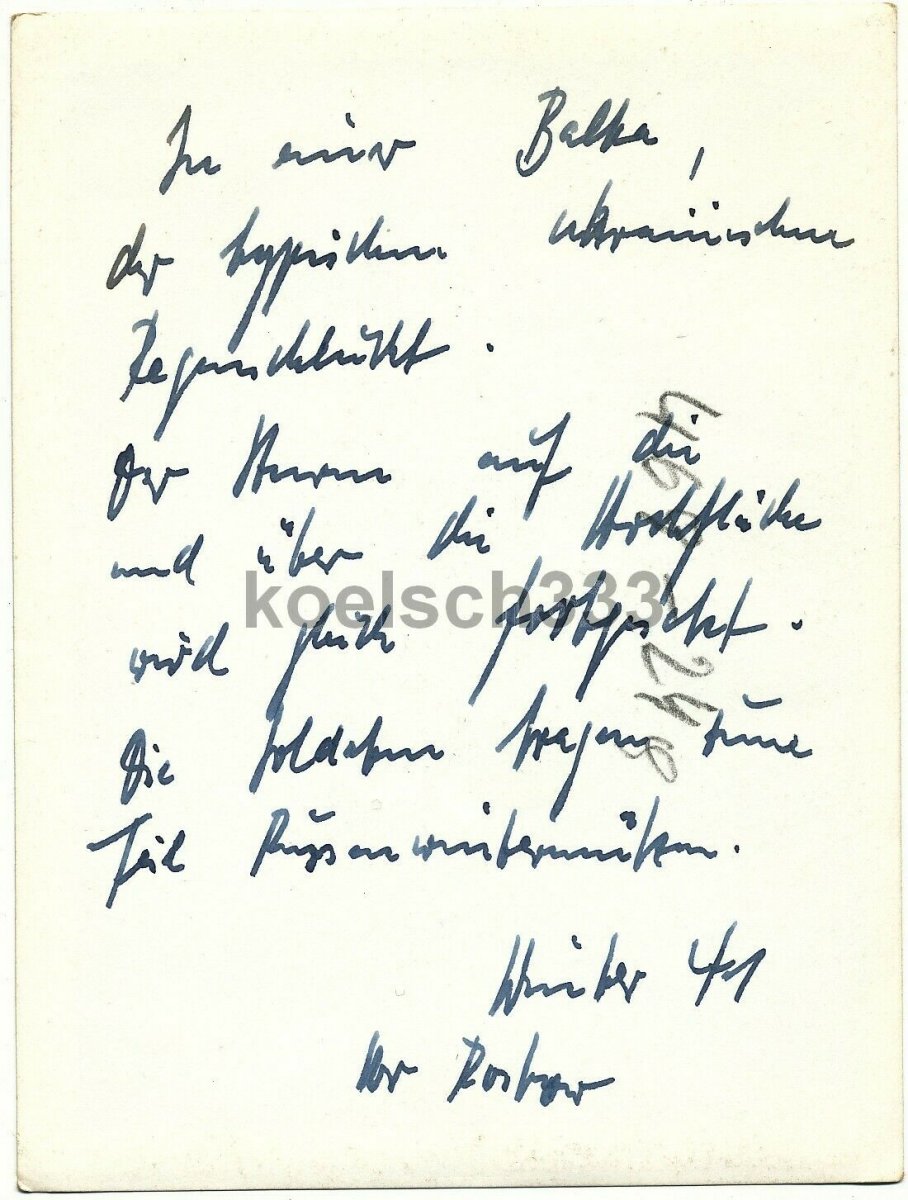 In einer Balka,
der typischen ukrainischen
Regenschlucht.
Der Sturm auf die
und über die Hochfläche
wird gleich fortgesetzt.
Die Soldaten tragen zum
Teil Russenwintermützen.
Winter 41
Vor Rostow
koelsch333